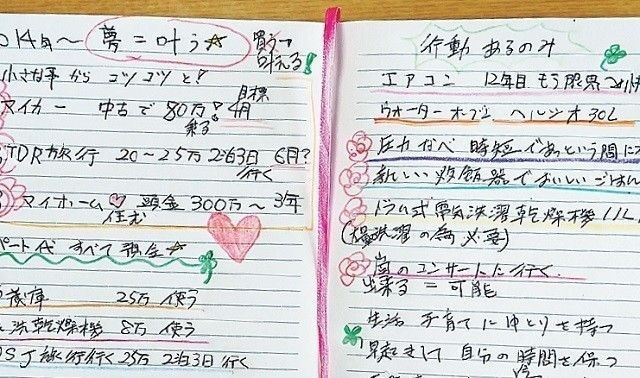 014年〜 夢=叶う☆
買う→叶える!
小さな事から コツコツと!
マイカー 中古で 80万! 4月
目標
乗る
TDR旅行 20〜25万 2泊3日 6月?
行く
マイホーム♡ 頭金 300万〜 3年
住む
パートA すべて預金☆
蔵庫 25万 使う
洗乾燥機 8万 使う
SJ旅行行く 25万 2泊3日 行く
行動 あるのみ
エアコン 12年目 もう限界
ウォーターオーブン ヘルシオ 30L
圧力なべ 時短であっという間に
新しい炊飯器でおいしいごはん
ドラム式電気洗濯乾燥機 11L
洗濯の為 必要)
嵐のコンサートに行く
出来る = 可能
生活 子育てにゆとりを持つ
早起きして 自分の時間を保つ